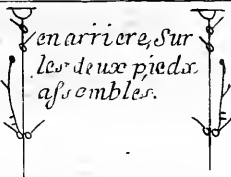 en arriere, Sur
les deux pieds
aſsembles.